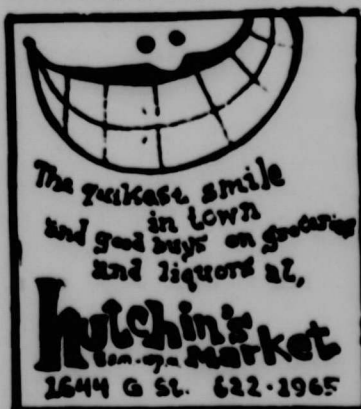 The quikest smile
in town
and good buys on groceries
and liquors at,
hutchin's
market
1644 G St. 622-1965